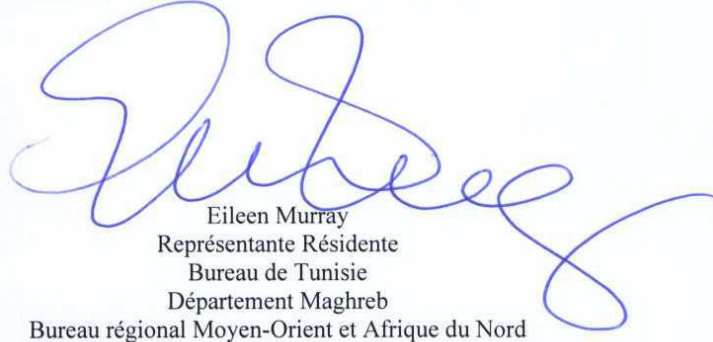 Eileen Murray
Représentante Résidente
Bureau de Tunisie
Département Maghreb
Bureau régional Moyen-Orient et Afrique du Nord